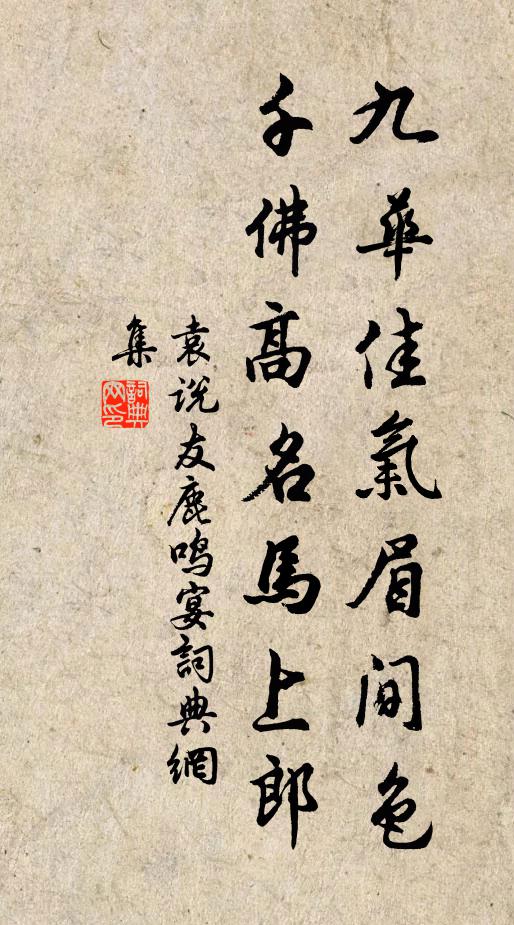 九華佳氣眉間色
千佛高名馬上郎
袁说友鹿鸣宴詞典網
集
詞典
网印